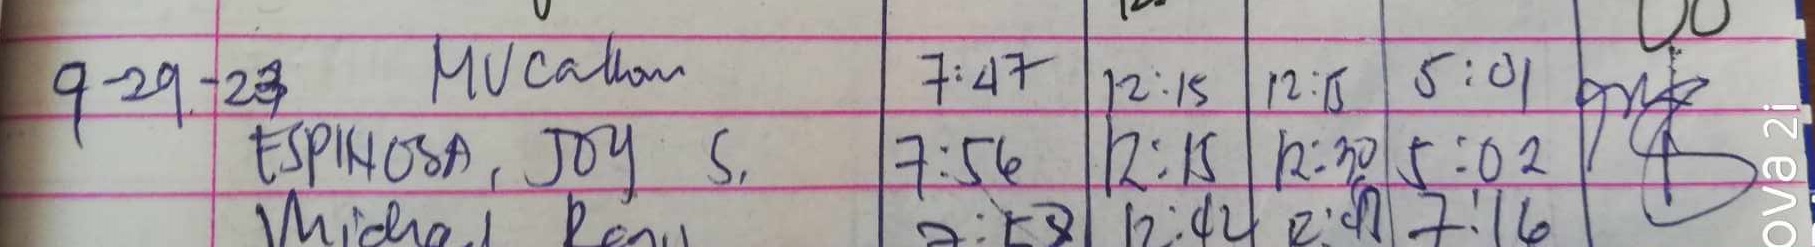 9-29-23 MV Callom 7:47 12:15 12:15 5:01
ESPINOSA, JOY S. 7:56 12:15 12:30 5:02
Michael 7:58 12:42 7:16
ova 2i